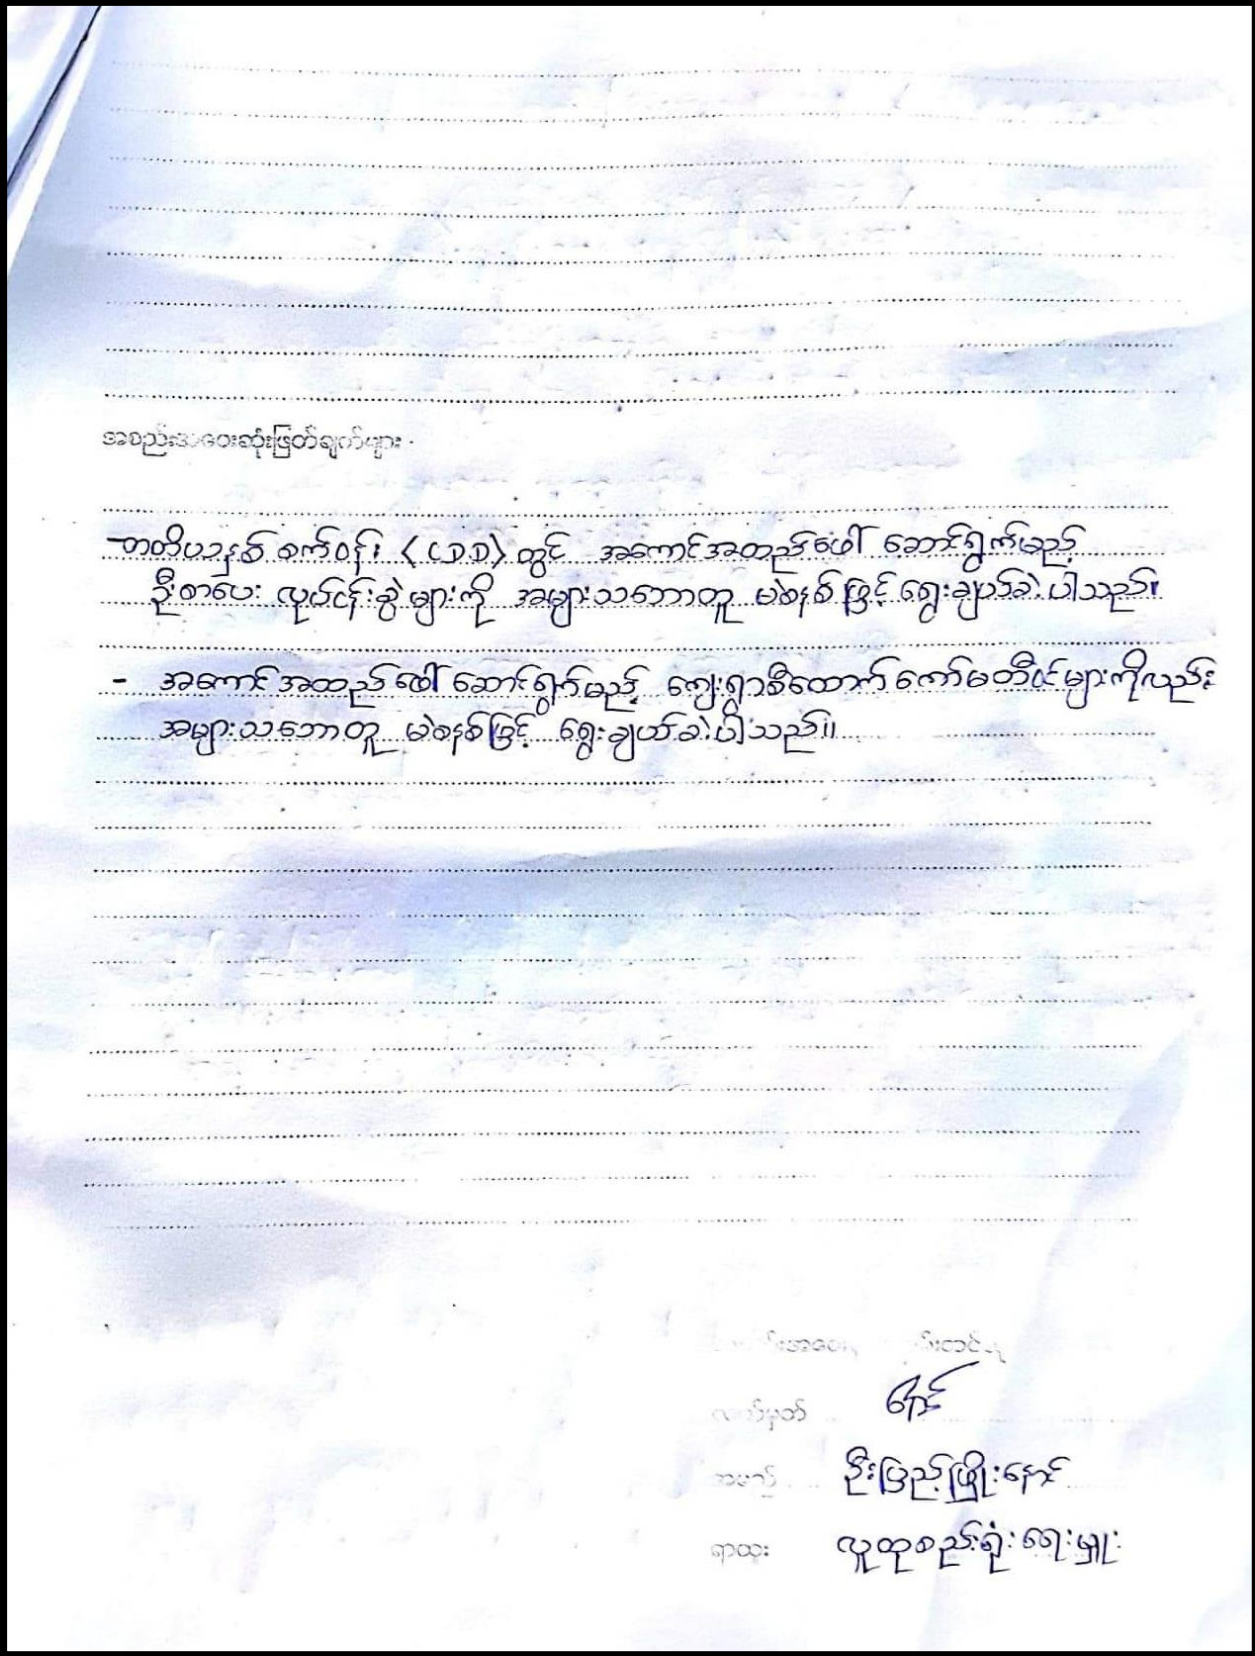 အစည်းအဝေးဆုံးဖြတ်ချက်များ
- တတိယနှစ် စက်ဝန်း (CDD) တွင် အကောင်အထည်ဖေါ် ဆောင်ရွက်မည့်
ဦးစားပေး လုပ်ငန်းခွဲများကို အများသဘောတူ မဲစနစ်ဖြင့် ရွေးချယ်ခဲ့ပါသည်။
- အကောင်အထည်ဖေါ် ဆောင်ရွက်မည့် ကျေးရွာစီထောက်ကော်မတီဝင်များကိုလည်း
အများသဘောတူ မဲစနစ်ဖြင့် ရွေးချယ်ခဲ့ပါသည်။
လက်မှတ်
အမည် ဦးပြည့်ဖြိုးနောင်
ရာထူး လူထုစည်းရုံးရေးမှူး